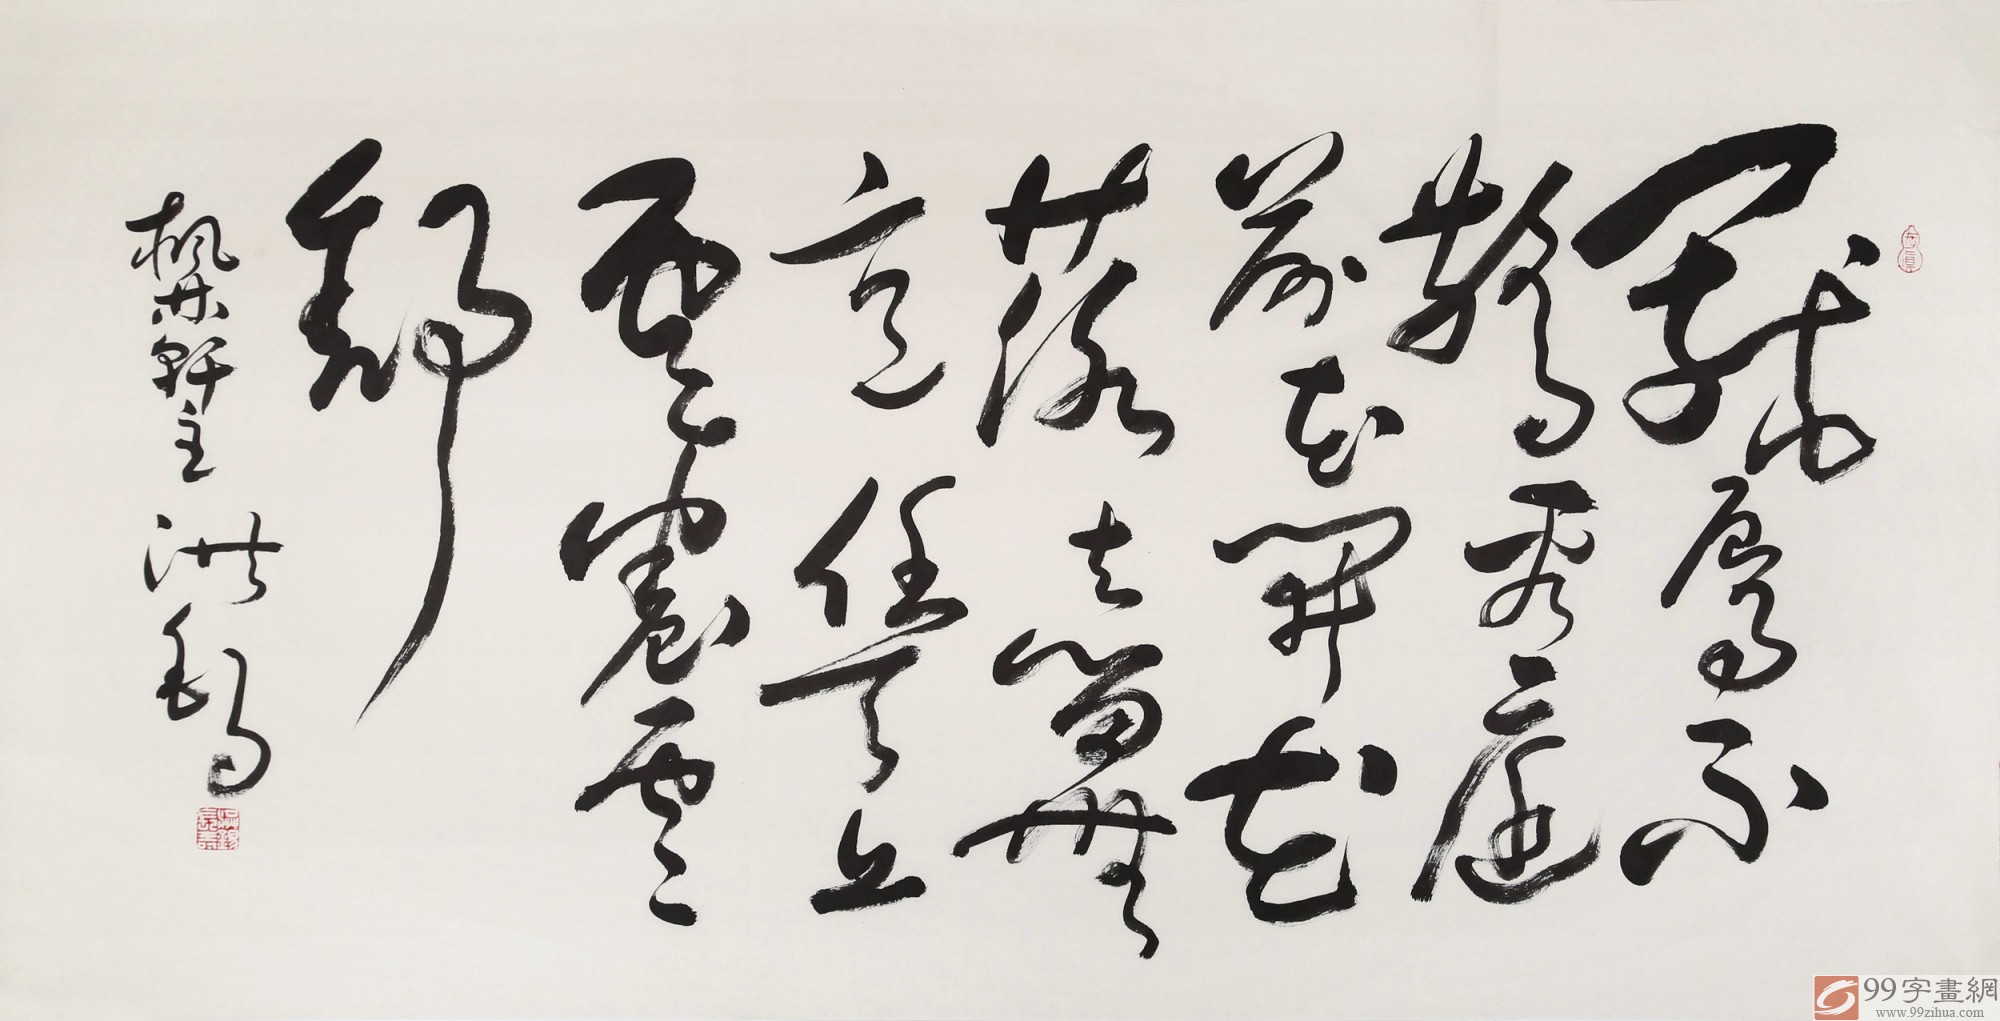 寵辱不
驚看庭
前花開花
落去留無
意任天上
雲卷雲
舒
楓林軒主 洪
99字畫網
www.99zihua.com